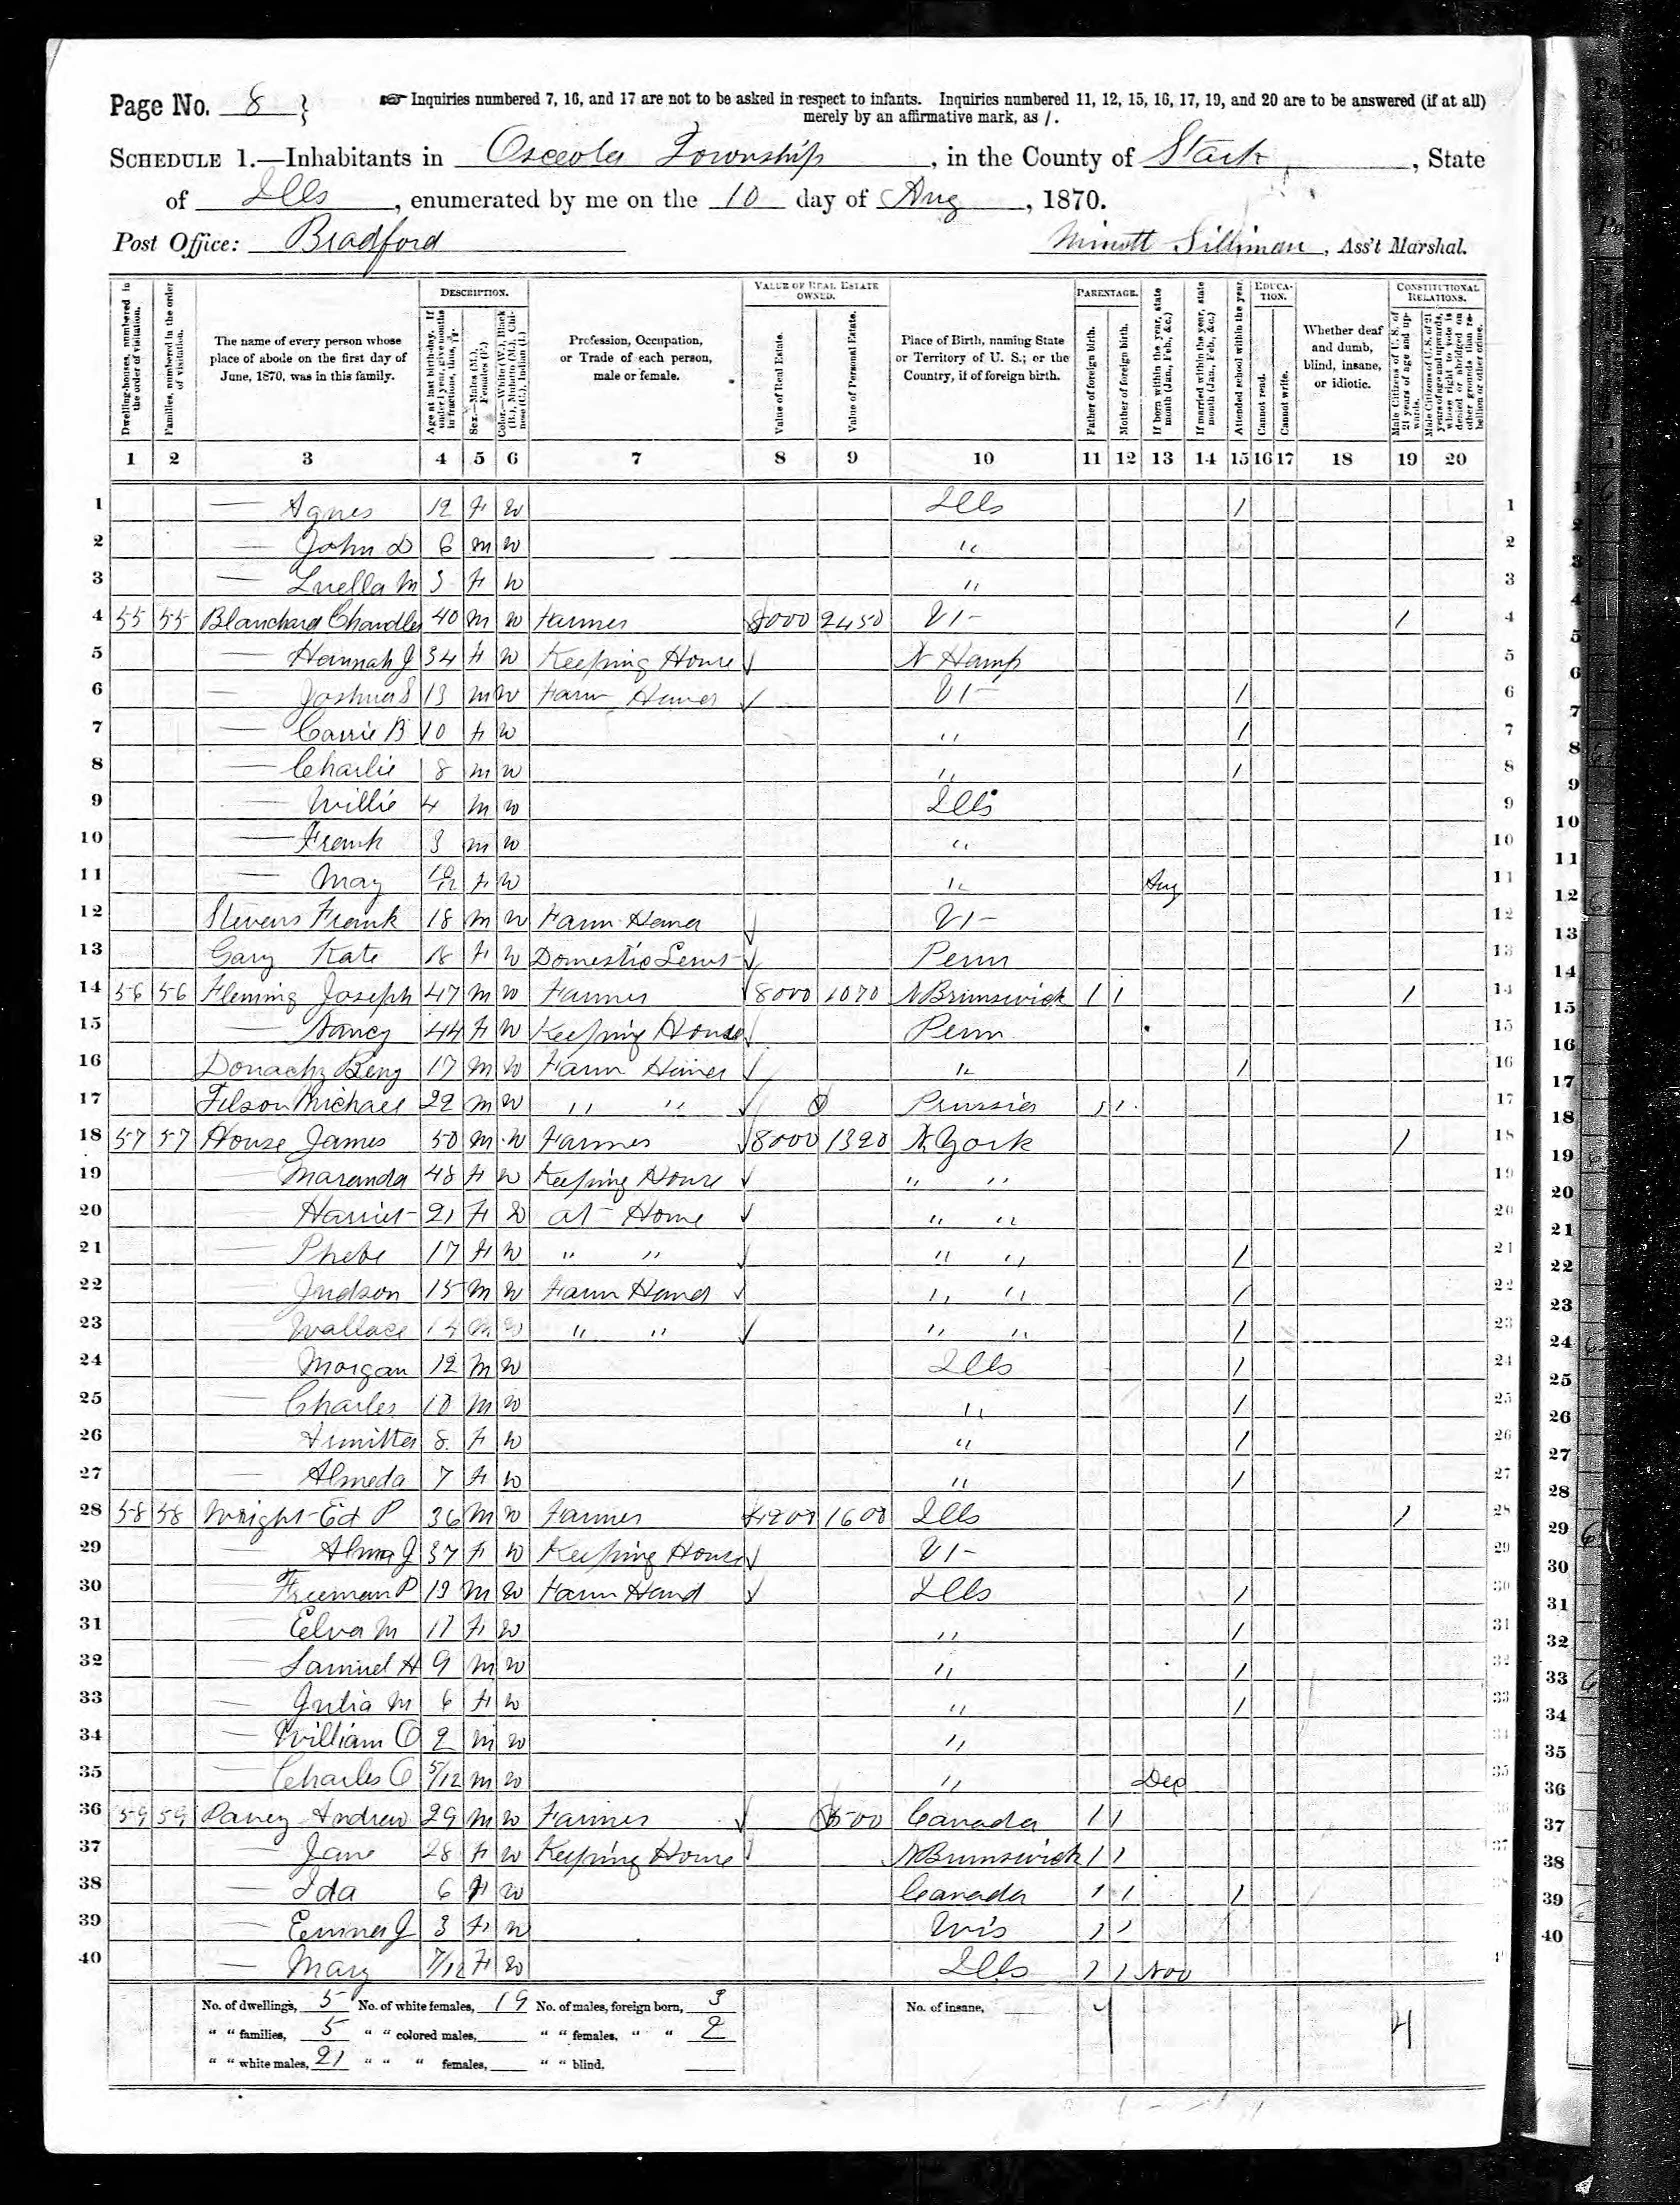 Page No. 8 } ☞ Inquiries numbered 7, 16, and 17 are not to be asked in respect to infants. Inquiries numbered 11, 12, 15, 16, 17, 19, and 20 are to be answered (if at all)
merely by an affirmative mark, as /.
SCHEDULE 1.—Inhabitants in Osceola Township, in the County of Stark, State
of Ills, enumerated by me on the 10 day of Aug, 1870.
Post Office: Bradford Minott Silliman, Ass't Marshal.
Dwelling-houses, numbered in the order of visitation.
Families, numbered in the order of visitation.
The name of every person whose place of abode on the first day of June, 1870, was in this family.
DESCRIPTION.
Age at last birth-day. If under 1 year, give months in fractions, thus, 3/12.
Sex.—Males (M.), Females (F.)
Color.—White (W.), Black (B.), Mulatto (M.), Chinese (C.), Indian (I.)
Profession, Occupation, or Trade of each person, male or female.
VALUE OF REAL ESTATE OWNED.
Value of Real Estate.
Value of Personal Estate.
Place of Birth, naming State or Territory of U. S.; or the Country, if of foreign birth.
PARENTAGE.
Father of foreign birth.
Mother of foreign birth.
If born within the year, state month (Jan., Feb., &c.)
If married within the year, state month (Jan., Feb., &c.)
Attended school within the year.
EDUCATION.
Cannot read.
Cannot write.
Whether deaf and dumb, blind, insane, or idiotic.
CONSTITUTIONAL RELATIONS.
Male Citizens of U. S. of 21 years of age and upwards.
Male Citizens of U. S. of 21 years of age and upwards, whose right to vote is denied or abridged on other grounds than rebellion or other crime.
1 2 3 4 5 6 7 8 9 10 11 12 13 14 15 16 17 18 19 20
1 — Agnes 12 F W Ills / 1
2 — John D 6 M W " 2
3 — Luella M 3 F W " 3
4 55 55 Blanchard Chandler 40 M W Farmer 8000 2450 Vt- / 4
5 — Hannah J 34 F W Keeping House N Hamp 5
6 — Joshua S 13 M W Farm Hand Vt- / 6
7 — Carrie B 10 F W " / 7
8 — Charlie 8 M W " / 8
9 — Willie 4 M W Ills 9
10 — Frank 3 M W " 10
11 — May 10/12 F W " Aug 11
12 Stevens Frank 18 M W Farm Hand Vt- 12
13 Gary Kate 18 F W Domestic Serv- Penn 13
14 56 56 Fleming Joseph 47 M W Farmer 8000 1070 N Brunswick / / / 14
15 — Nancy 44 F W Keeping House Penn 15
16 Donachy Benj 17 M W Farm Hand " / 16
17 Filson Michael 22 M W " " Prussia / / 17
18 57 57 House James 50 M W Farmer 8000 1320 N York / 18
19 — Maranda 48 F W Keeping House " " 19
20 — Harriet 21 F W at Home " " 20
21 — Phebe 17 F W " " " " / 21
22 — Judson 15 M W Farm Hand " " / 22
23 — Wallace 14 M W " " " " / 23
24 — Morgan 12 M W Ills / 24
25 — Charles 10 M W " / 25
26 — 8 F W " / 26
27 — Almeda 7 F W " / 27
28 58 58 Wright Ed P 36 M W Farmer 4200 1600 Ills / 28
29 — Alma J 37 F W Keeping House Vt- 29
30 — Freeman P 13 M W Farm Hand Ills / 30
31 — Elva M 11 F W " / 31
32 — Samuel H 9 M W " / 32
33 — Julia M 6 F W " / 33
34 — William O 2 M W " 34
35 — Charles C 5/12 M W " Dec 35
36 59 59 Andrew 29 M W Farmer 500 Canada / / 36
37 — Jane 28 F W Keeping House N Brunswick / / 37
38 — Ida 6 F W Canada / / / 38
39 — Emma J 3 F W Wis / /
40 — Mary 7/12 F W Ills / / Nov
No. of dwellings, 5 No. of white females, 19 No. of males, foreign born, 3 No. of insane, 4
" " families, 5 " " colored males, " " females, " " 2 4
" " white males, 21 " " " females, " " blind,